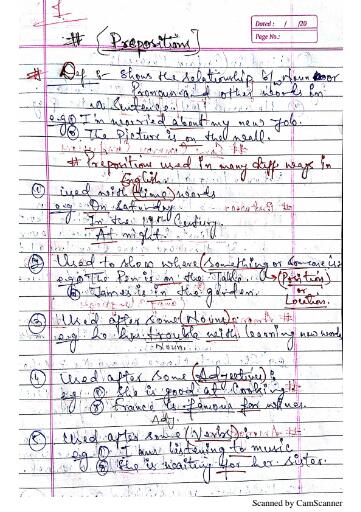 1
Dated: / /20
Page No.:
# [Preposition]
# Def :- Shows the relationship b/w Noun or
Pronoun and other words in
a Sentence.
e.g. ① I'm worried about my new Job.
② The Picture is on the wall.
# Preposition used in many diff ways in
English.
① Used with (time) words
e.g. On Saturday.
In the 19th Century.
At night.
② Used to show where (something or someone is
e.g. ⓐ The Pen is in the Table. → (Position)
ⓑ James is in the garden. or
Location.
③ Used after some (Noun):-
e.g. he has trouble with learning new words
Noun.
④ Used after some (Adjective):-
e.g. ① She is good at Cooking
② France is famous for wines.
Adj.
⑤ Used after some (Verbs):-
e.g. ① I am listening to music
② She is waiting for her sister.
Scanned by CamScanner